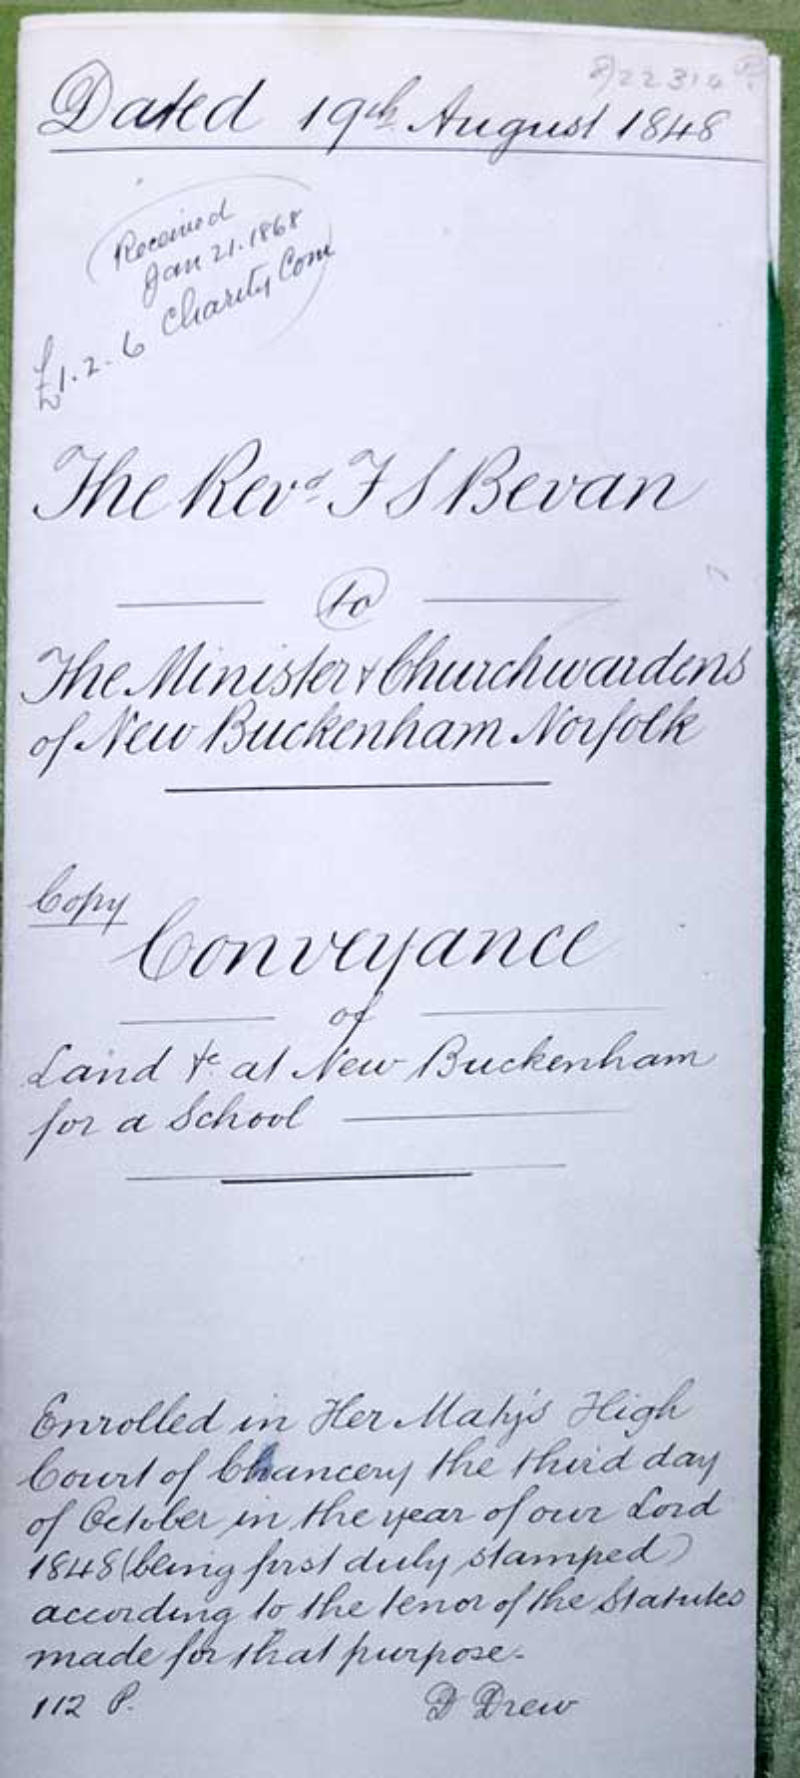 Dated 19th August 1848
Received
Jan 21. 1868
Charity Com
£1. 2. 6
The Revd F S Bevan
to
The Minister & Churchwardens
of New Buckenham Norfolk
Copy
Conveyance
of
Land &c at New Buckenham
for a School
Enrolled in Her Matys High
Court of Chancery the third day
of October in the year of our Lord
1848 (being first duly stamped)
according to the tenor of the Statutes
made for that purpose.
112 P.
D Drew